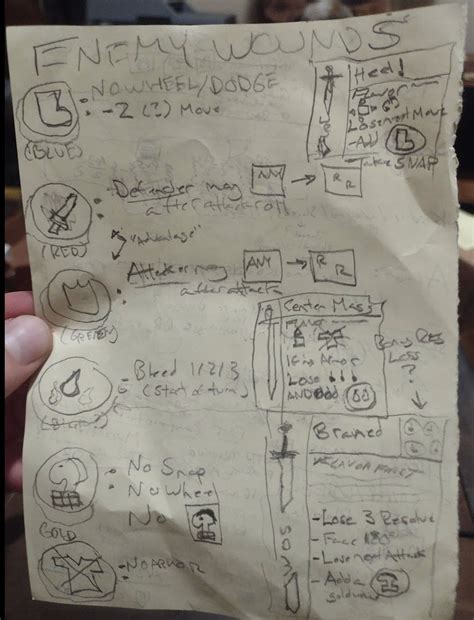 ENEMY WOUNDS
NO WHEEL/DODGE
-2 (?) Move
(BLUE)
Heel!
Flavor
Lose next Move
-Add
Take SNAP
Defender may
after attack roll
ANY
R
R
(RED)
"advantage"
Attacker may
after attack
ANY
R
R
(GREEN)
Center Mass
If no Armor
Lose
AND
Bonus RES
Loss
?
Bleed 1/2/3
(Start of turn)
Brained
FLAVOR TEXT
No Snap
No Wheel
No
GOLD
- Lose 3 Resolve
- Face 180
- Lose next Attack
- Add a
gold
NO ARMOR